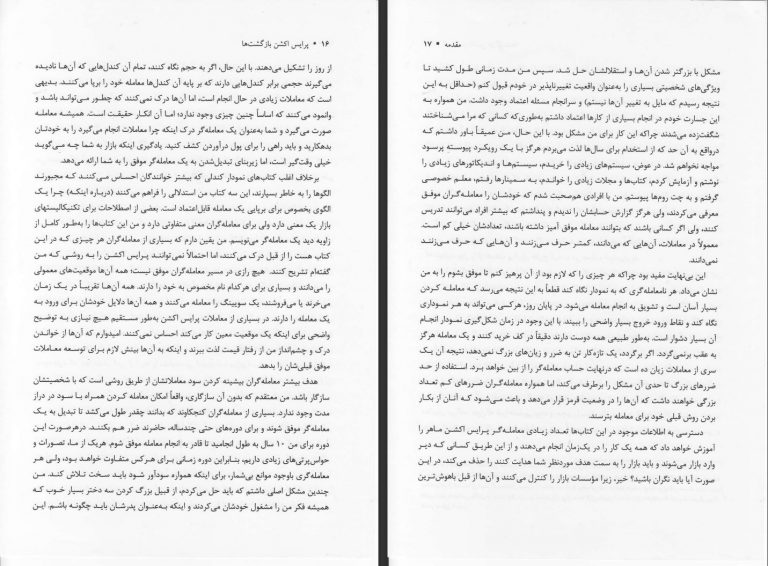 ۱۶ • پرایس اکشن بازگشت‌ها
از روز را تشکیل می‌دهند. با این حال، اگر به حجم نگاه کنند، تمام آن کندل‌هایی که آن‌ها نادیده
می‌گیرند حجمی برابر کندل‌هایی دارند که بر پایه آن کندل‌ها معامله خود را برپا می‌کنند. بدیهی
است که معاملات زیادی در حال انجام است، اما آن‌ها درک نمی‌کنند که چطور می‌تواند باشد و
وانمود می‌کنند که اساساً چنین چیزی وجود ندارد؛ اما آن انکار حقیقت است. همیشه معامله
صورت می‌گیرد و شما به‌عنوان یک معامله‌گر درک اینکه چرا معاملات انجام می‌گیرد را به خودتان
بدهکارید و باید راهی را برای پول درآوردن کشف کنید. یادگیری اینکه بازار به شما چه می‌گوید
خیلی وقت‌گیر است، اما زیربنای تبدیل‌شدن به یک معامله‌گر موفق را به شما ارائه می‌دهد.
برخلاف اغلب کتاب‌های نمودار کندلی که بیشتر خوانندگان احساس می‌کنند که مجبورند
الگوها را به خاطر بسپارند، این سه کتاب من استدلالی را فراهم می‌کنند (درباره اینکه) چرا یک
الگوی بخصوص برای برپایی یک معامله قابل‌اعتماد است. بعضی از اصطلاحات برای تکنیکالیستهای
بازار یک معنی دارد ولی برای معامله‌گران معنی متفاوتی دارد و من این کتاب‌ها را به‌طور کامل از
زاویه دید یک معامله‌گر می‌نویسم. من یقین دارم که بسیاری از معامله‌گران هر چیزی که در این
کتاب هست را از قبل درک می‌کنند، اما احتمالاً نمی‌توانند پرایس اکشن را به روشی که من
گفته‌ام تشریح کنند. هیچ رازی در مسیر معامله‌گران موفق نیست؛ همه آن‌ها موقعیت‌های معمولی
را می‌دانند و بسیاری برای هرکدام نام مخصوص به خود را دارند. همه آن‌ها تقریباً در یک زمان
می‌خرند یا می‌فروشند، یک سویینگ را معامله می‌کنند و همه آن‌ها دلایل خودشان برای ورود به
یک معامله را دارند. در بسیاری از معاملات پرایس اکشن به‌طور مستقیم هیچ نیازی به توضیح
واضحی برای اینکه یک موقعیت معین کار می‌کند احساس نمی‌کنند. امیدوارم که آن‌ها از خواندن
درک و چشم‌انداز من از رفتار قیمت لذت ببرند و اینکه به آن‌ها بینش لازم برای توسعه معاملات
موفق قبلی‌شان را بدهد.
هدف بیشتر معامله‌گران بیشینه کردن سود معاملاتشان از طریق روشی است که با شخصیتشان
سازگار باشد. من معتقدم که بدون آن سازگاری، واقعاً امکان معامله کردن همراه با سود در دراز
مدت وجود ندارد. بسیاری از معامله‌گران کنجکاوند که بدانند چقدر طول می‌کشد تا تبدیل به یک
معامله‌گر موفق شوند و برای دوره‌های حتی چندساله، حاضرند ضرر هم بکنند. درهرصورت این
دوره برای من ۱۰ سال به طول انجامید تا قادر به انجام معامله موفق شوم. هریک از ما، تصورات و
حواس‌پرتی‌های زیادی داریم، بنابراین دوره زمانی برای هرکس متفاوت خواهد بود، ولی هر
معامله‌گری باوجود موانع بی‌شمار، برای اینکه همواره سودآور شود باید سخت تلاش کند. من
چندین مشکل اصلی داشتم که باید حل می‌کردم، از قبیل بزرگ کردن سه دختر بسیار خوب که
همیشه فکر من را مشغول خودشان می‌کردند و اینکه به‌عنوان پدرشان باید چگونه باشم. این
مقدمه • ۱۷
مشکل با بزرگتر شدن آن‌ها و استقلالشان حل شد. سپس من مدت زمانی طول کشید تا
ویژگی‌های شخصیتی بسیاری را به‌عنوان واقعیت تغییرناپذیر در خودم قبول کنم (حداقل به این
نتیجه رسیدم که مایل به تغییر آن‌ها نیستم) و سرانجام مسئله اعتماد وجود داشت. من همواره به
این جسارت خودم در انجام بسیاری از کارها اعتماد داشتم به‌طوری‌که کسانی که مرا می‌شناختند
شگفت‌زده می‌شدند چراکه این کار برای من مشکل بود. با این حال، من عمیقاً باور داشتم که
درواقع به آن حد که از استخدام برای سال‌ها لذت می‌بردم هرگز با یک رویکرد پیوسته پرسود
مواجه نخواهم شد. در عوض، سیستم‌های زیادی را خریدم، سیستم‌ها و اندیکاتورهای زیادی را
نوشتم و آزمایش کردم، کتاب‌ها و مجلات زیادی را خواندم، به سمینارها رفتم، معلم خصوصی
گرفتم و به چت روم‌ها پیوستم. من با افرادی هم‌صحبت شدم که خودشان را معامله‌گران موفق
معرفی می‌کردند، ولی هرگز گزارش حسابشان را ندیدم و پنداشتم که بیشتر افراد می‌توانند تدریس
کنند، ولی اگر کسانی باشند که بتوانند معامله موفق آمیز داشته باشند، تعدادشان خیلی کم است.
معمولاً در معاملات، آن‌هایی که می‌دانند، کمتر حرف می‌زنند و آن‌هایی که حرف می‌زنند
نمی‌دانند.
این بی‌نهایت مفید بود چراکه هر چیزی را که لازم بود از آن پرهیز کنم تا موفق بشوم را به من
نشان می‌داد. هر نامعامله‌گری که به نمودار نگاه کند قطعاً به این نتیجه می‌رسد که معامله کردن
بسیار آسان است و تشویق به انجام معامله می‌شود. در پایان روز، هرکسی می‌تواند به هر نموداری
نگاه کند و نقاط ورود خروج بسیار واضحی را ببیند. با این وجود در زمان شکل‌گیری نمودار انجام
آن بسیار دشوار است. به‌طور طبیعی همه دوست دارند دقیقاً در کف خرید کنند و یک معامله هرگز
به عقب برنمی‌گردد. اگر برگردد، یک تازه‌کار تن به ضرر و زیان‌های بزرگ نمی‌دهد، نتیجه آن یک
سری از معاملات زیان ده است که درنهایت حساب معامله‌گر را از بین خواهد برد. استفاده از حد
ضررهای بزرگ تا حدی آن مشکل را برطرف می‌کند، اما همواره معامله‌گران ضررهای کم تعداد
بزرگی خواهند داشت که آن‌ها را در وضعیت قرمز قرار می‌دهد و باعث می‌شود که آنان از بکار
بردن روش قبلی خود برای معامله بترسند.
دسترسی به اطلاعات موجود در این کتاب‌ها تعداد زیادی معامله‌گر پرایس اکشن ماهر را
آموزش خواهد داد که همه یک کار را در یک‌زمان انجام می‌دهند و از این طریق کسانی که دیر
وارد بازار می‌شوند و باید بازار را به سمت هدف موردنظر شما هدایت کنند را حذف می‌کند، در این
صورت آیا باید نگران باشید؟ خیر، زیرا مؤسسات بازار را کنترل می‌کنند و آن‌ها از قبل باهوش‌ترین